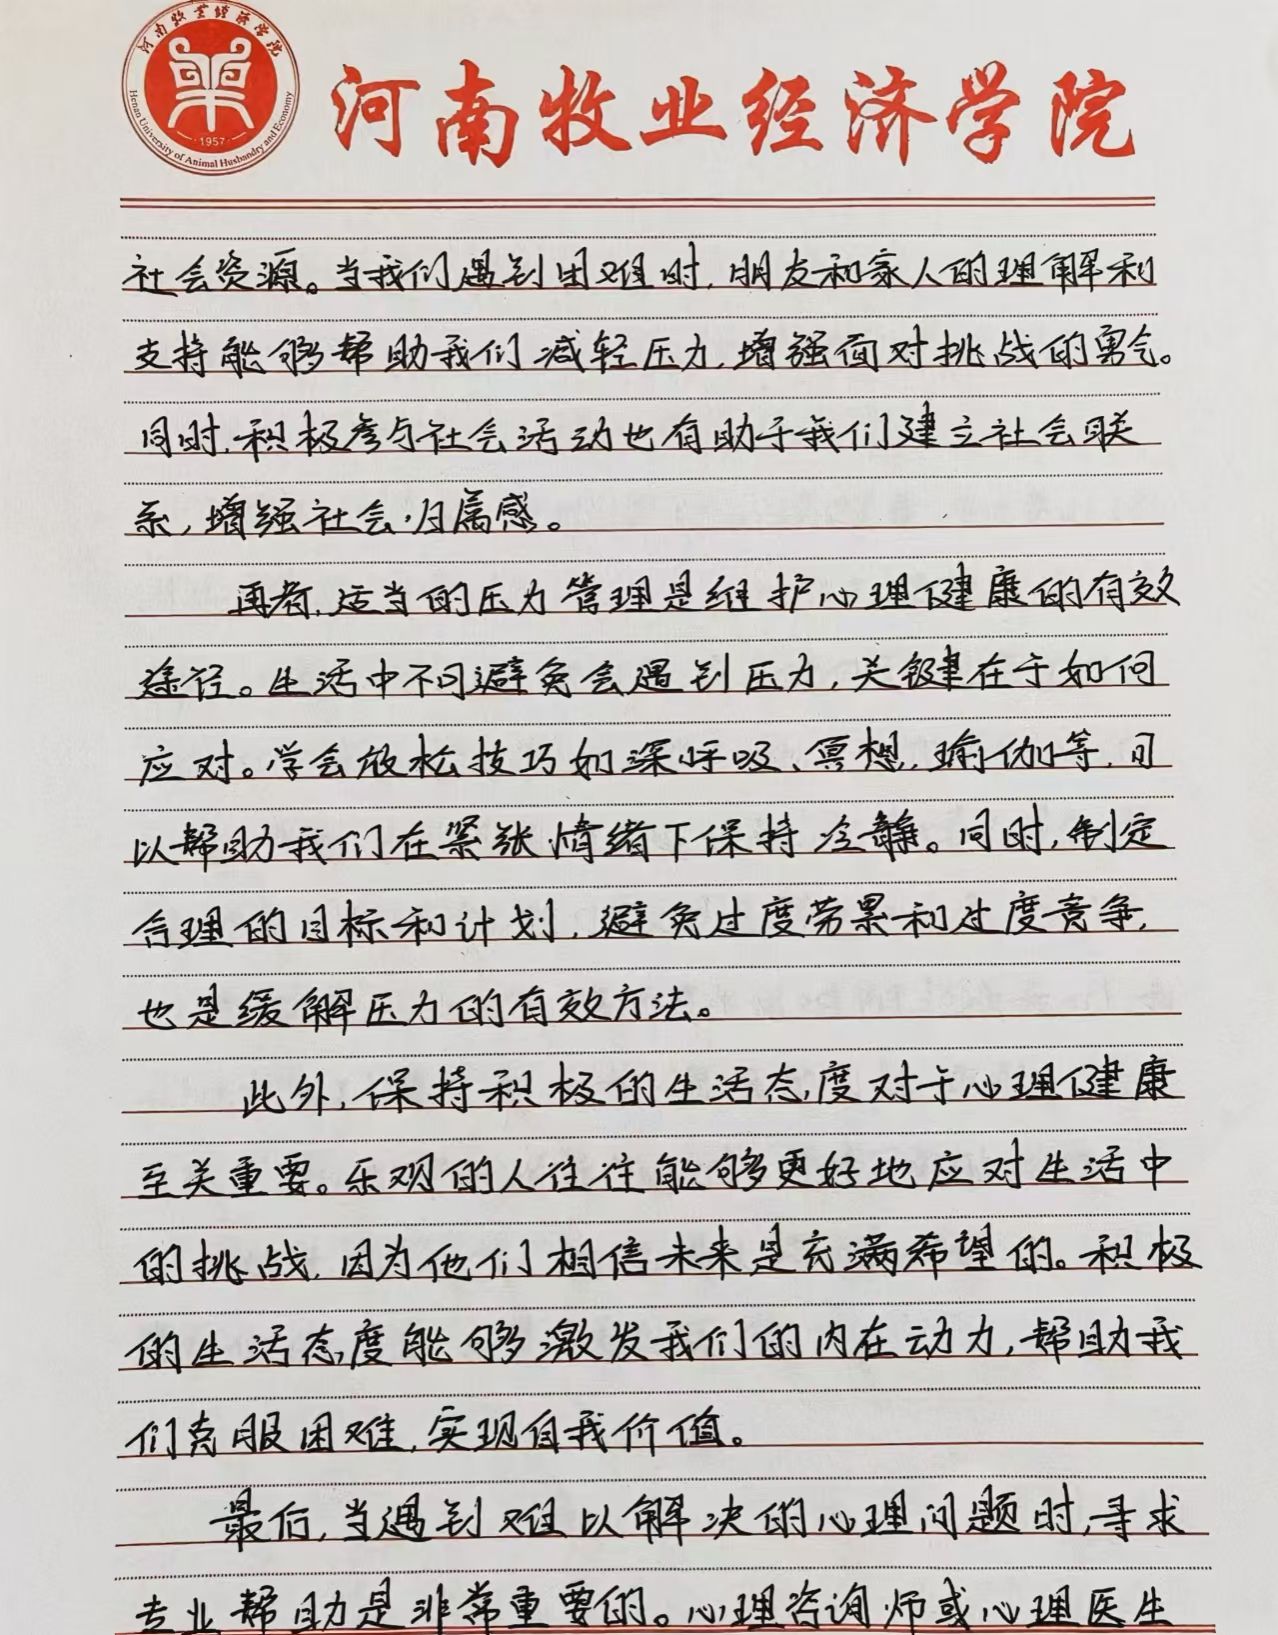 河南牧业经济学院
Henan University of Animal Husbandry and Economy
·1957·
河南牧业经济学院
社会资源。当我们遇到困难时,朋友和家人的理解和
支持能够帮助我们减轻压力,增强面对挑战的勇气。
同时,积极参与社会活动也有助于我们建立社会联
系,增强社会归属感。
再者,适当的压力管理是维护心理健康的有效
途径。生活中不可避免会遇到压力,关键在于如何
应对。学会放松技巧如深呼吸、冥想,瑜伽等,可
以帮助我们在紧张情绪下保持冷静。同时,制定
合理的目标和计划,避免过度劳累和过度竞争,
也是缓解压力的有效方法。
此外,保持积极的生活态度对于心理健康
至关重要。乐观的人往往能够更好地应对生活中
的挑战,因为他们相信未来是充满希望的。积极
的生活态度能够激发我们的内在动力,帮助我
们克服困难,实现自我价值。
最后,当遇到难以解决的心理问题时,寻求
专业帮助是非常重要的。心理咨询师或心理医生